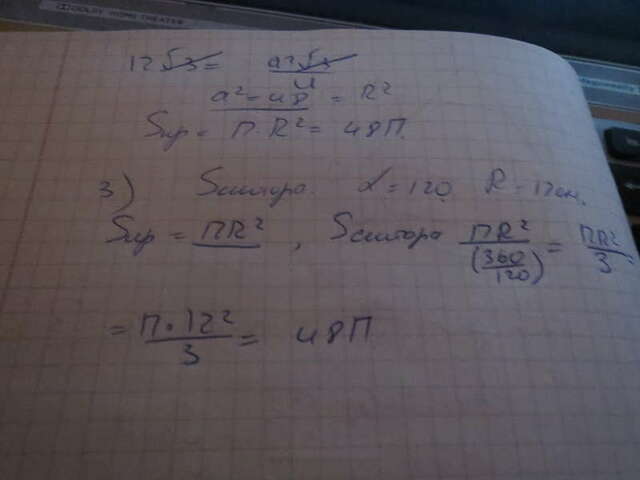 DOLBY HOME THEATER
12√3 = a²√3/4
a² = 48 = R²
Sкр = П·R² = 48П.
3) Sсектора α = 120 R = 12см.
Sкр = ПR², Sсектора ПR²/(360/120) = ПR²/3
= П·12²/3 = 48П